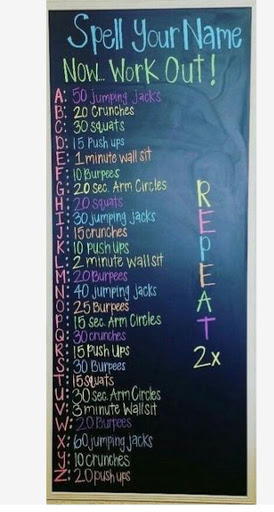 Spell Your Name
Now... Work Out!
A: 50 jumping jacks
B: 20 crunches
C: 30 squats
D: 15 Push ups
E: 1 minute wall sit
F: 10 Burpees
G: 20 sec. Arm Circles
H: 20 squats
I: 30 jumping jacks
J: 15 crunches
K: 10 push ups
L: 2 minute wallsit
M: 20 Burpees
N: 40 jumping jacks
O: 25 Burpees
P: 15 sec. Arm Circles
Q: 30 crunches
R: 15 Push Ups
S: 30 Burpees
T: 15 squats
U: 30 sec. Arm Circles
V: 3 minute Wallsit
W: 20 Burpees
X: 60 jumping jacks
Y: 10 crunches
Z: 20 push ups
REPEAT
2x